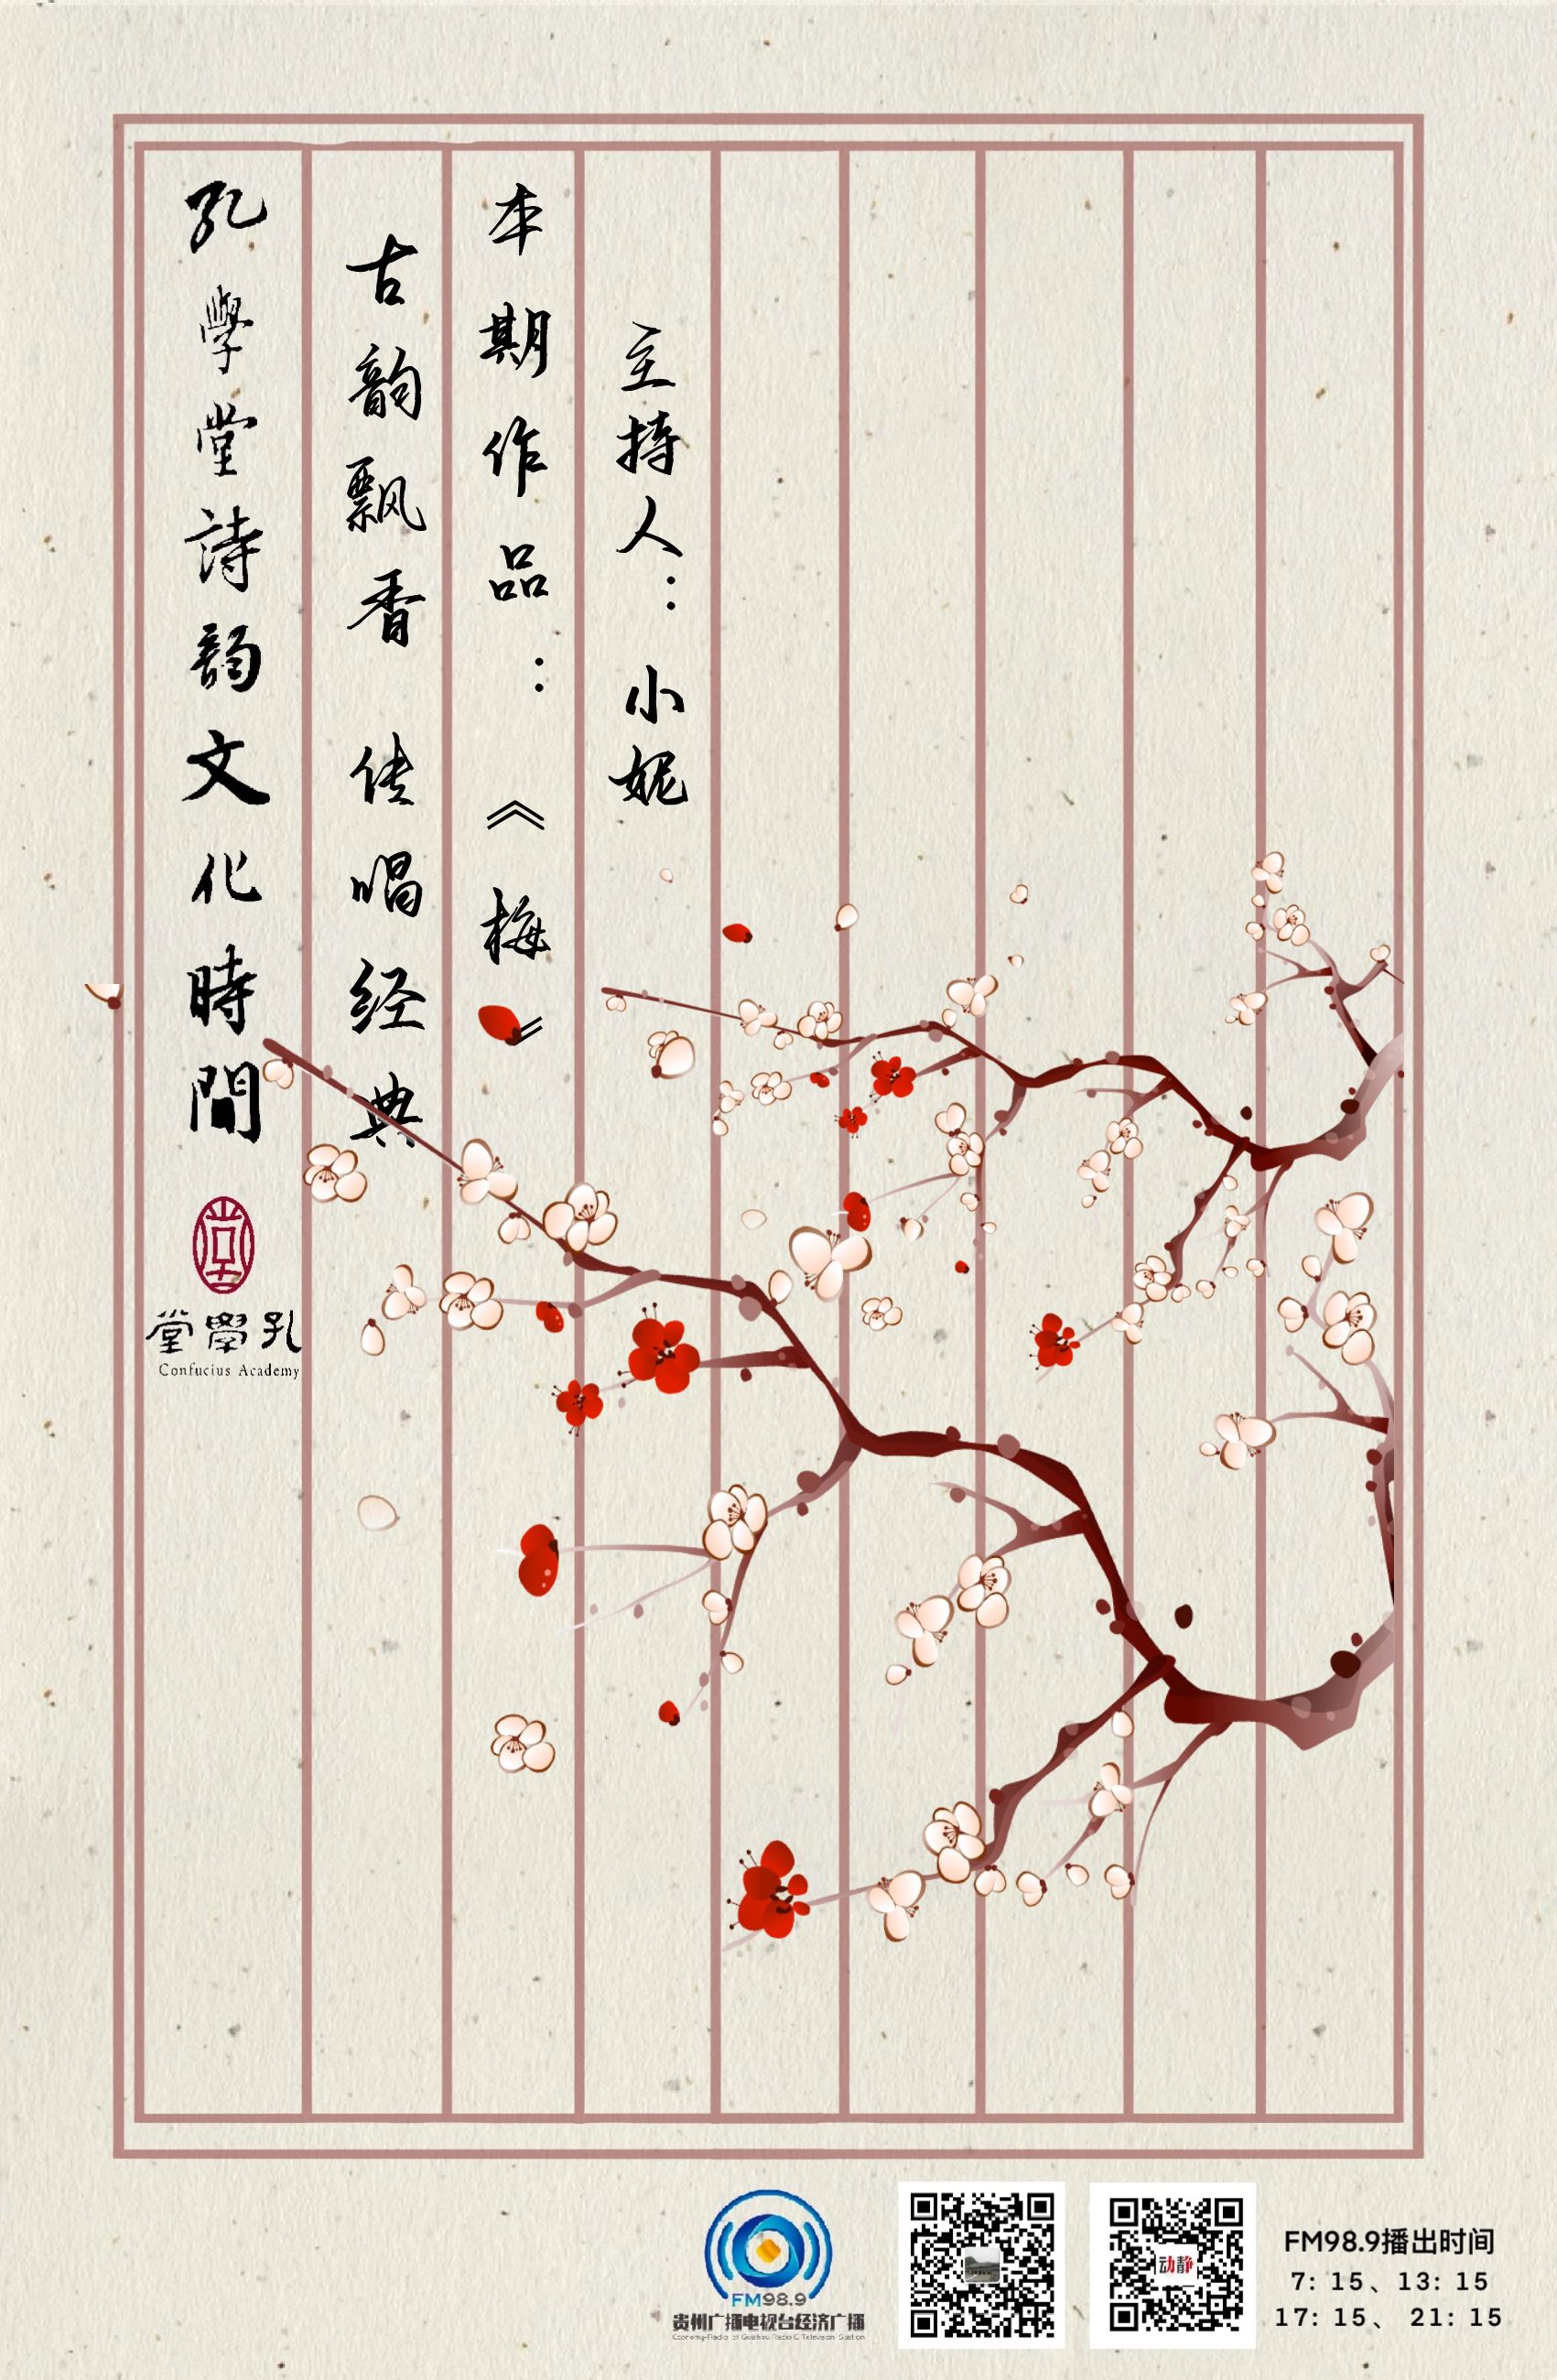 孔學堂詩韵文化時間
古韵飘香 传唱经典
本期作品：《梅》
主持人：小妮
堂學孔
Confucius Academy
FM98.9
贵州广播电视台经济广播
Economy-Radio of Guizhou Radio & Television Station
动静
FM98.9播出时间
7: 15、13: 15
17: 15、 21: 15